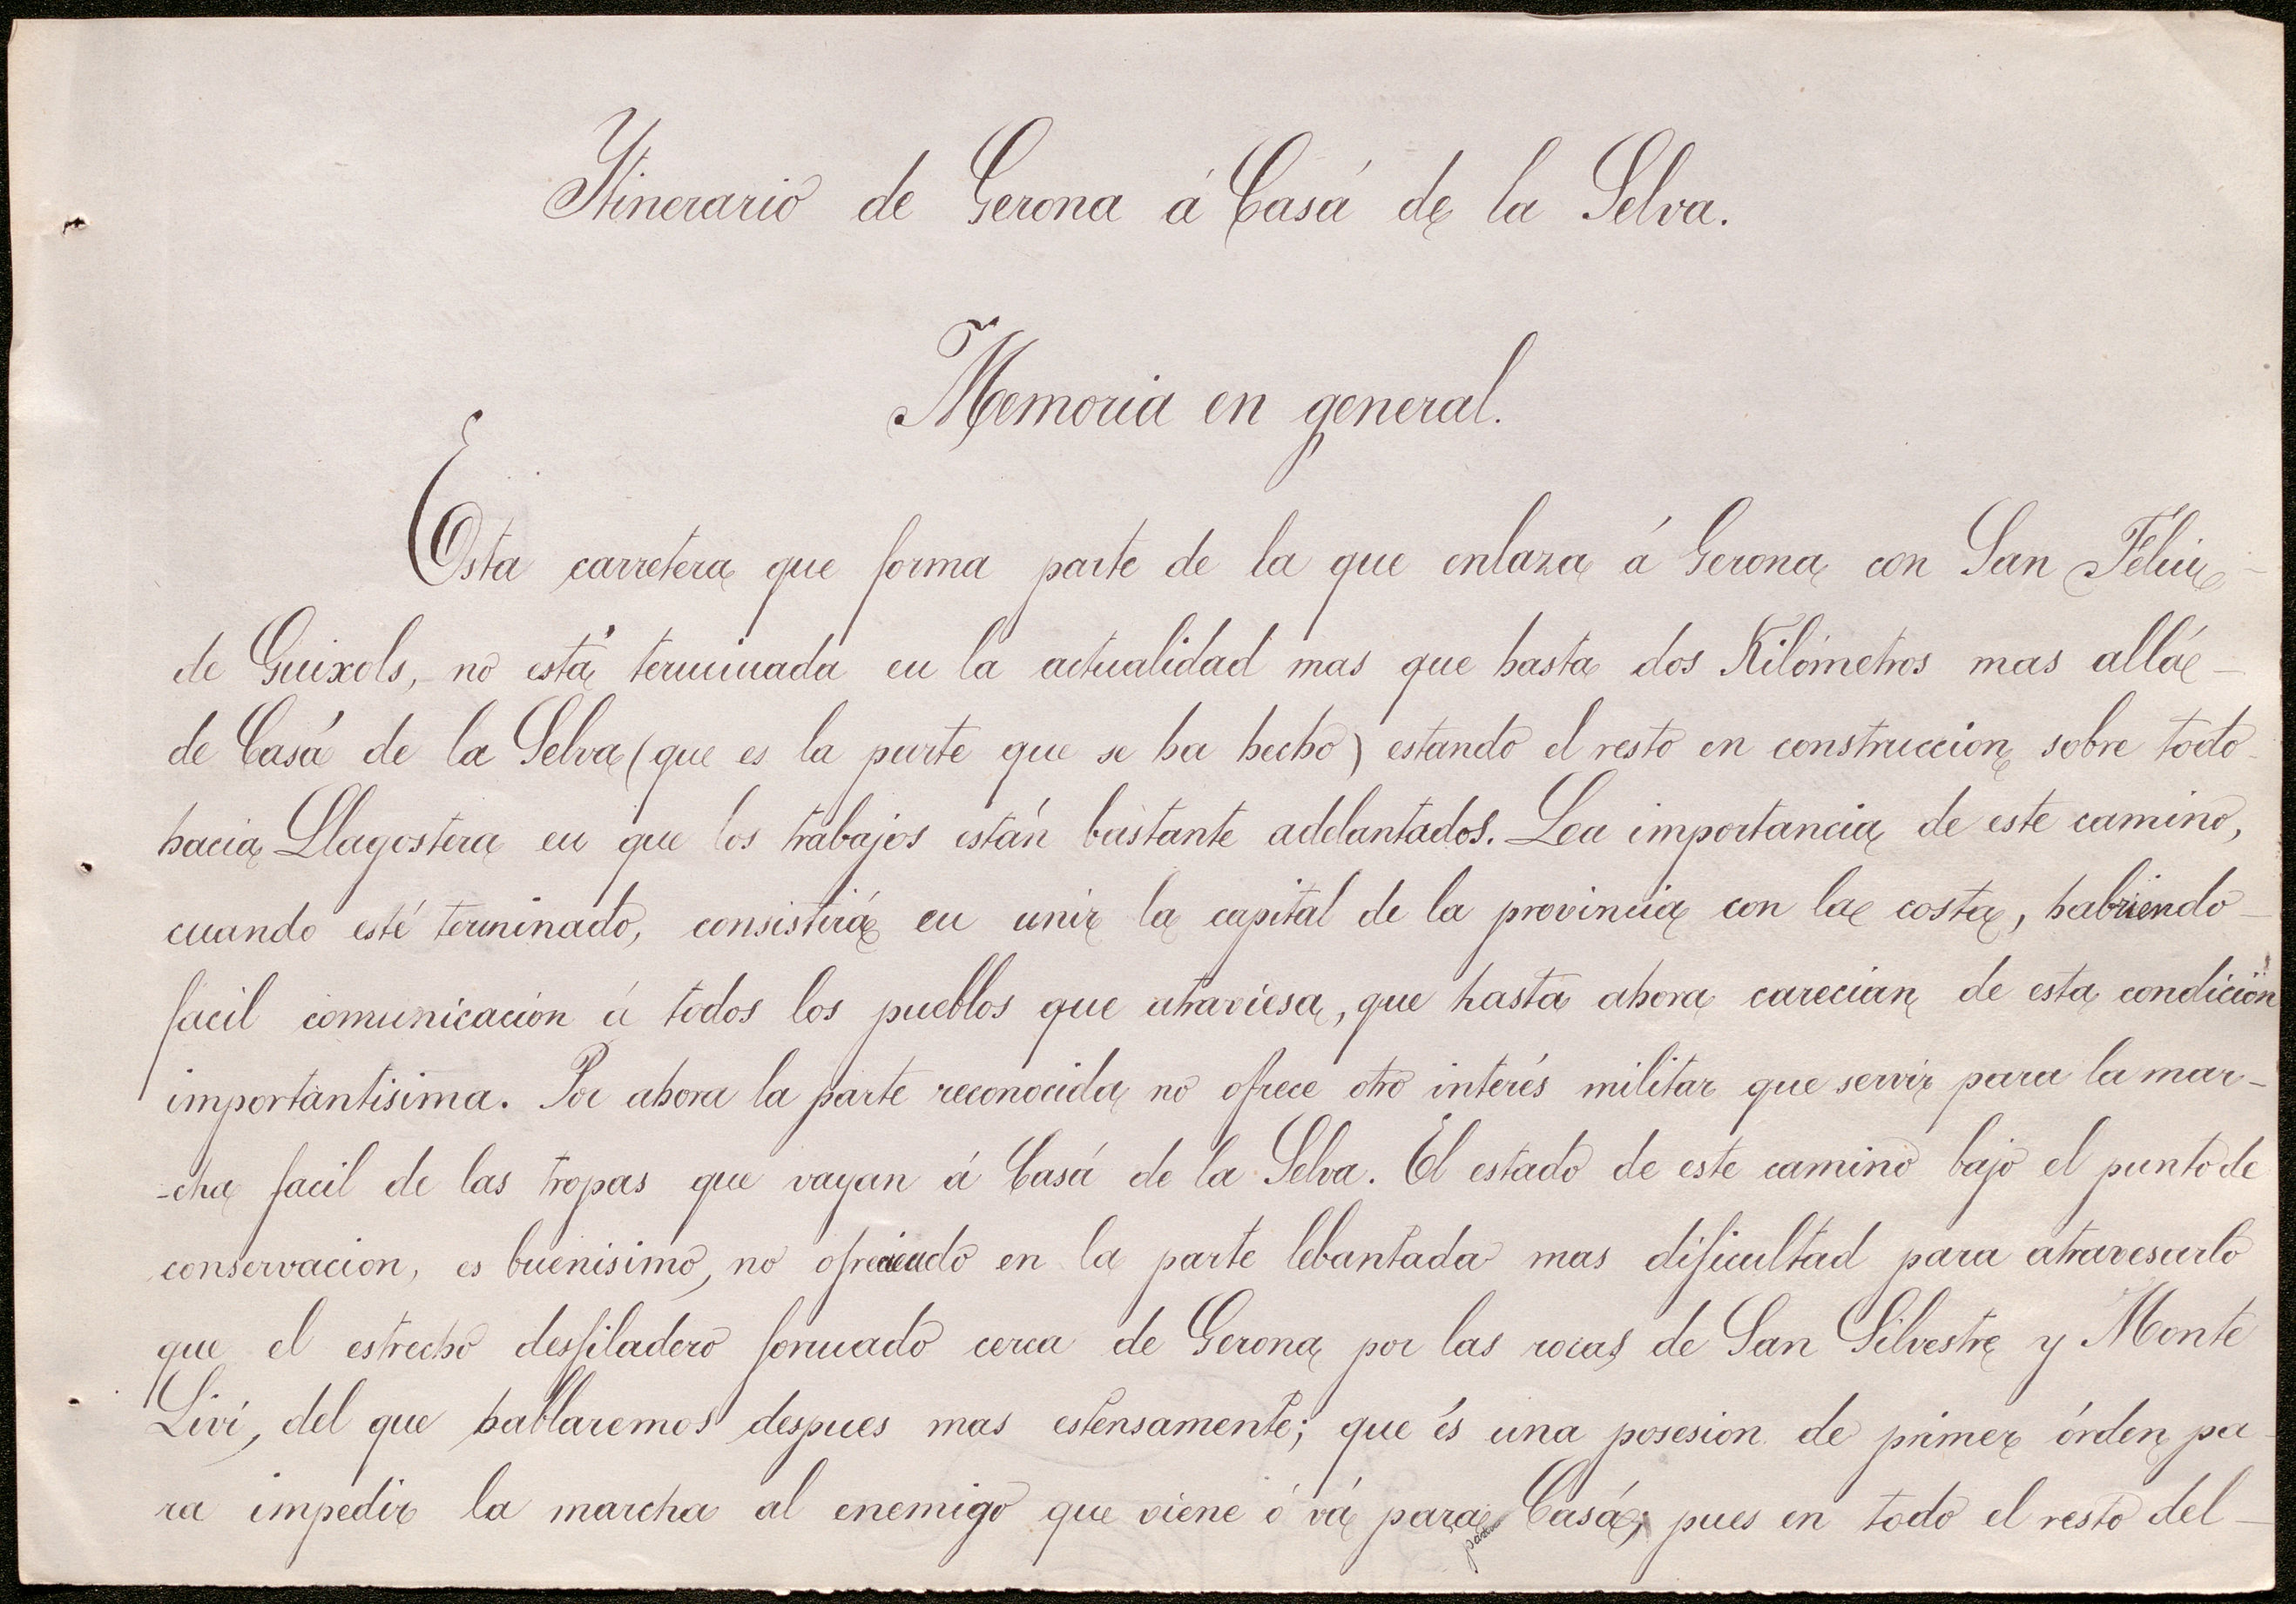 Ytinerario de Gerona á Casá de la Selva.
Memoria en general.
Esta carretera que forma parte de la que enlaza á Gerona con San Feliu
de Guixols, no está terminada en la actualidad mas que hasta dos Kilómetros mas allá
de Casá de la Selva (que es la parte que se ha hecho) estando el resto en construccion sobre todo
hacia Llagostera en que los trabajos están bastante adelantados. La importancia de este camino,
cuando esté terminado, consistirá en unir la capital de la provincia con la costa, habriendo
facil comunicación á todos los pueblos que atraviesa, que hasta ahora carecian de esta condición
importantisima. Por ahora la parte reconocida no ofrece otro interés militar que servir para la mar-
-cha facil de las tropas que vayan á Casá de la Selva. El estado de este camino bajo el punto de
conservacion, es buenisimo, no ofreciendo en la parte lebantada mas dificultad para atravesarlo
que el estrecho desfiladero formado cerca de Gerona por las rocas de San Silvestre y Monte
Liví, del que hablaremos despues mas estensamente; que és una posesion de primer órden pa-
ra impedir la marcha al enemigo que viene ó vá para Casá; pues en todo el resto del